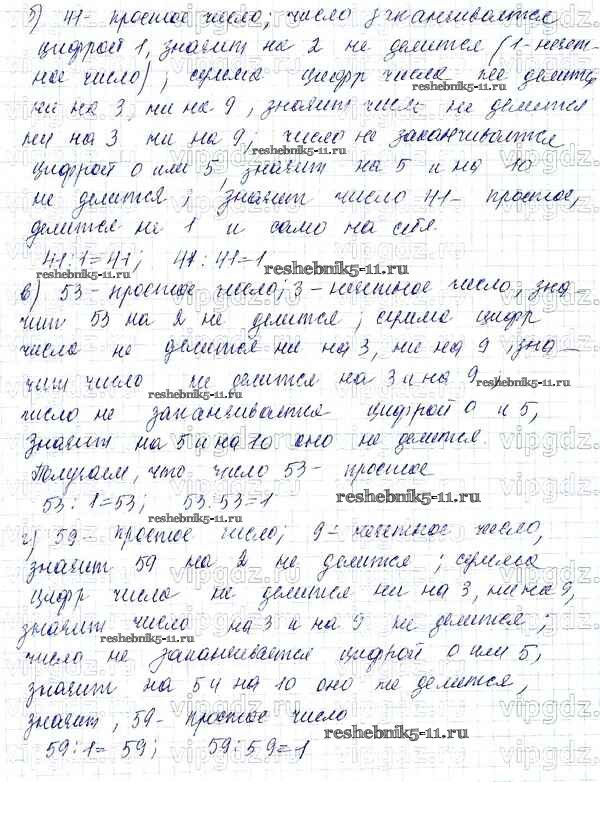 б) 41 - простое число; число заканчивается
цифрой 1, значит на 2 не делится (1 - нечет-
ное число); сумма цифр числа не делится
reshebnik5-11.ru
ни на 3, ни на 9, значит число не делится
ни на 3 ни на 9; число не заканчивается
vipgdz.ru
цифрой 0 или 5, значит на 5 и на 10
не делится; значит число 41 - простое,
делится на 1 и само на себя.
41:1=41; 41:41=1
reshebnik5-11.ru
reshebnik5-11.ru
в) 53 - простое число; 3 - нечетное число, зна-
чит 53 на 2 не делится; сумма цифр
числа не делится ни на 3, ни на 9, зна-
чит число не делится на 3 и на 9,
reshebnik5-11.ru
число не заканчивается цифрой 0 и 5,
значит на 5 и на 10 оно не делится.
Получаем, что число 53 - простое
53:1=53; 53:53=1
reshebnik5-11.ru
reshebnik5-11.ru
г) 59 - простое число; 9 - нечетное число,
значит 59 на 2 не делится; сумма
цифр числа не делится ни на 3, ни на 9,
значит число на 3 и на 9 не делится;
reshebnik5-11.ru
число не заканчивается цифрой 0 или 5,
значит на 5 и на 10 оно не делится,
значит, 59 - простое число
59:1=59; 59:59=1
reshebnik5-11.ru
reshebnik5-11.ru